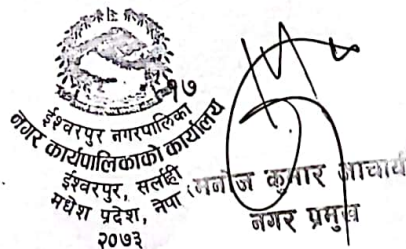 १७
ईश्वरपुर नगरपालिका
नगर कार्यपालिकाको कार्यालय
ईश्वरपुर, सर्लाही
मधेश प्रदेश, नेपा
२०७३
(मनोज कुमार आचार्य
नगर प्रमुख